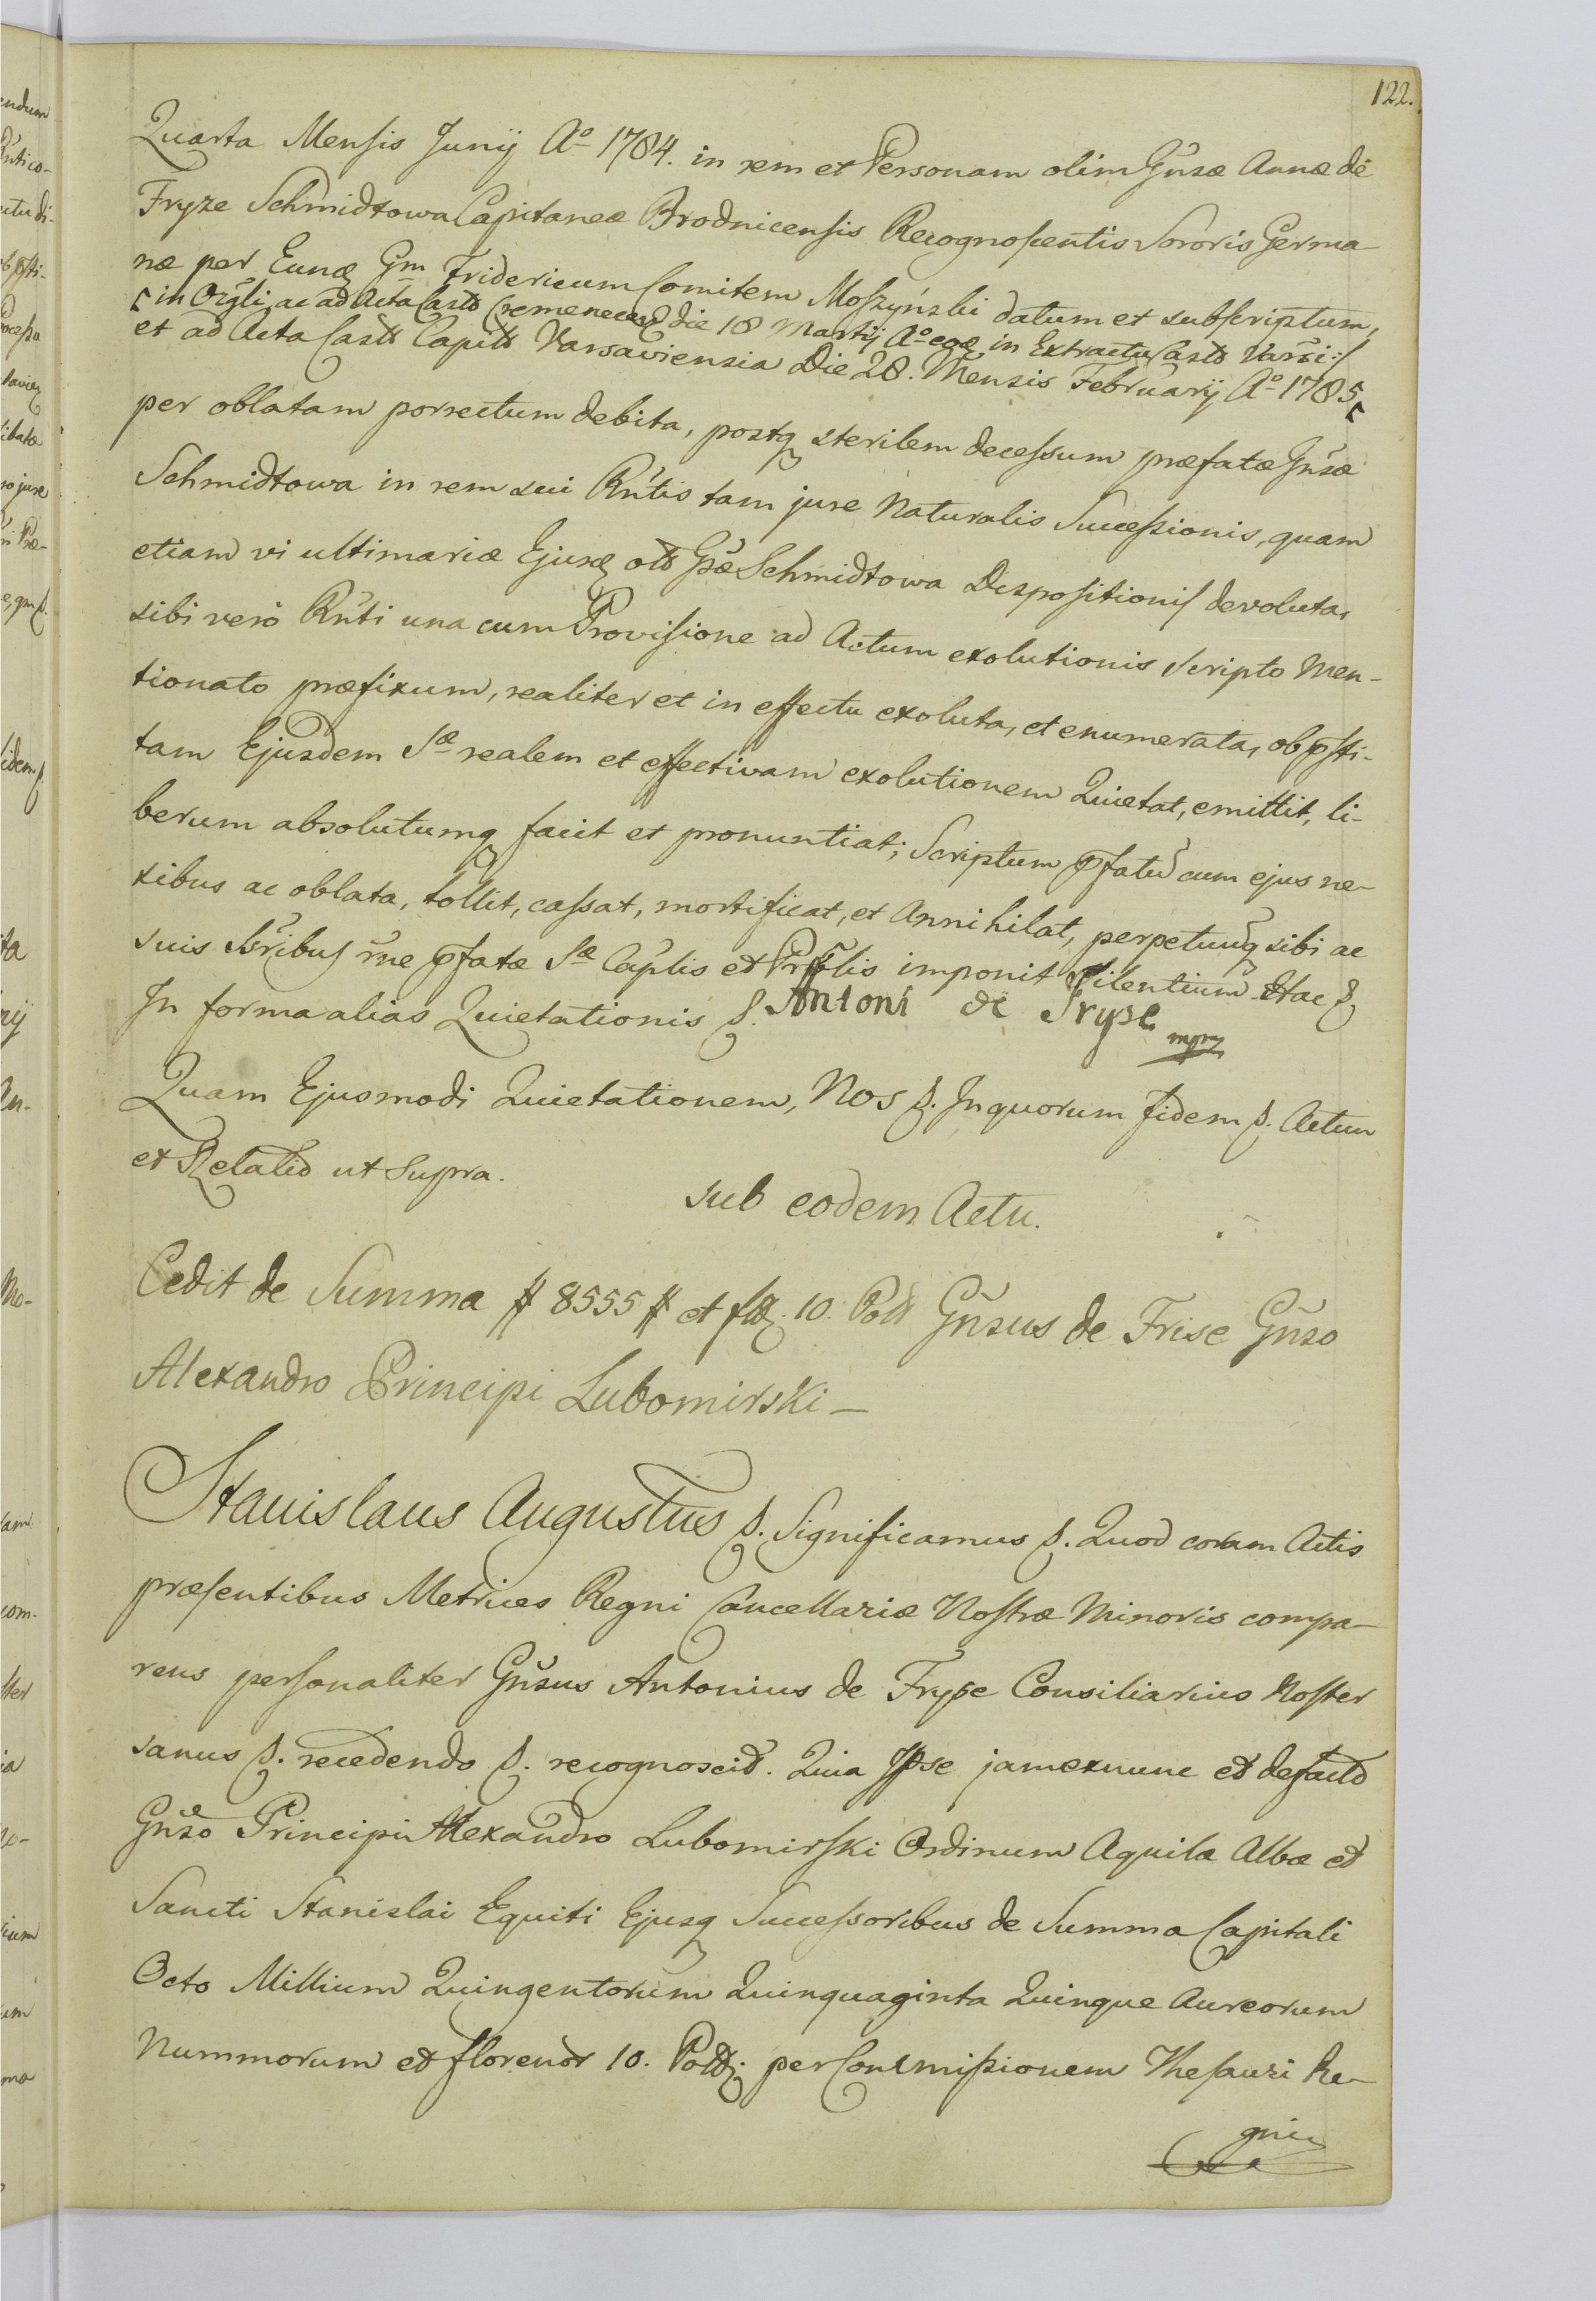 122.
Quarta Mensis Junij Aº 1784. in rem et Personam olim Gnsæ Annæ de
Fryze Schmidtowa Capitaneæ Brodnicensis Recognoscentis Sororis Germa-
næ per Eunq Gm Fridericum Comitem Moszyński datum et subscriptum,
in Origli ac ad Acta Casts Cremenecen die 18 Martij Aº eoq in Extractu Casts Varsi:
et ad Acta Casts Capits Varsaviensia Die 28. Mensis Februarij Aº 1785
per oblatam porrectum debita, postq sterilem decessum præfatæ Gnsæ
Schmidtowa in rem sui Rntis tam jure Naturalis Successionis, quam
etiam vi ultimariæ Ejusq olS Gsæ Schmidtowa Dispositionis devoluta,
sibi verò Rnti una cum Provisione ad Actum exolutionis scripto Men-
tionato præfixum, realiter et in effectu exoluta, et enumerata, ob psti-
tam Ejusdem Sæ realem et effectivam exolutionem Quietat, emittit, li-
berum absolutumq facit et pronuntiat; Scriptum pfatu cum ejus ne-
xibus ac oblata, tollit, cassat, mortificat, et Annihilat, perpetuuq sibi ac
suis Ssribus rne pfatæ Sæ Caplis et Prlis imponit Silentium Hac
In forma alias Quietationis
Antoni de Fryse mpp
Quam Ejusmodi Quietationem, Nos In quorum fidem Actum
et Relatio ut Supra.
sub eodem Actu.
Cedit de Summa # 8555 # et flq. 10. Poll Gnsus de Frise Gnso
Alexandro Principi Lubomirski-
Stanislaus Augustus Significamus Quod coram Actis
præsentibus Metrices Regni Cancellariæ Nostræ Minoris compa-
rens personaliter Gnsus Antonius de Fryse Consiliarius Noster
sanus recedendo recognoscit. Quia Ipse jam ex nunc et de facto
Gnso Principi Alexandro Lubomirski Ordinum Aquilæ Albæ et
Sancti Stanislai Equiti Ejusq Successoribus de Summa Capitali
Octo Millium Quingentorum Quinquaginta Quinque Aureorum
Nummorum et florenor 10. Poll. per Commissionem Thesauri Re-
gni